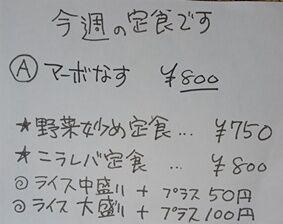 今週の定食です
Ⓐ マーボなす ¥800
★野菜炒め定食… ¥750
★ニラレバ定食… ¥800
◎ライス中盛り + プラス50円
◎ライス大盛り + プラス100円